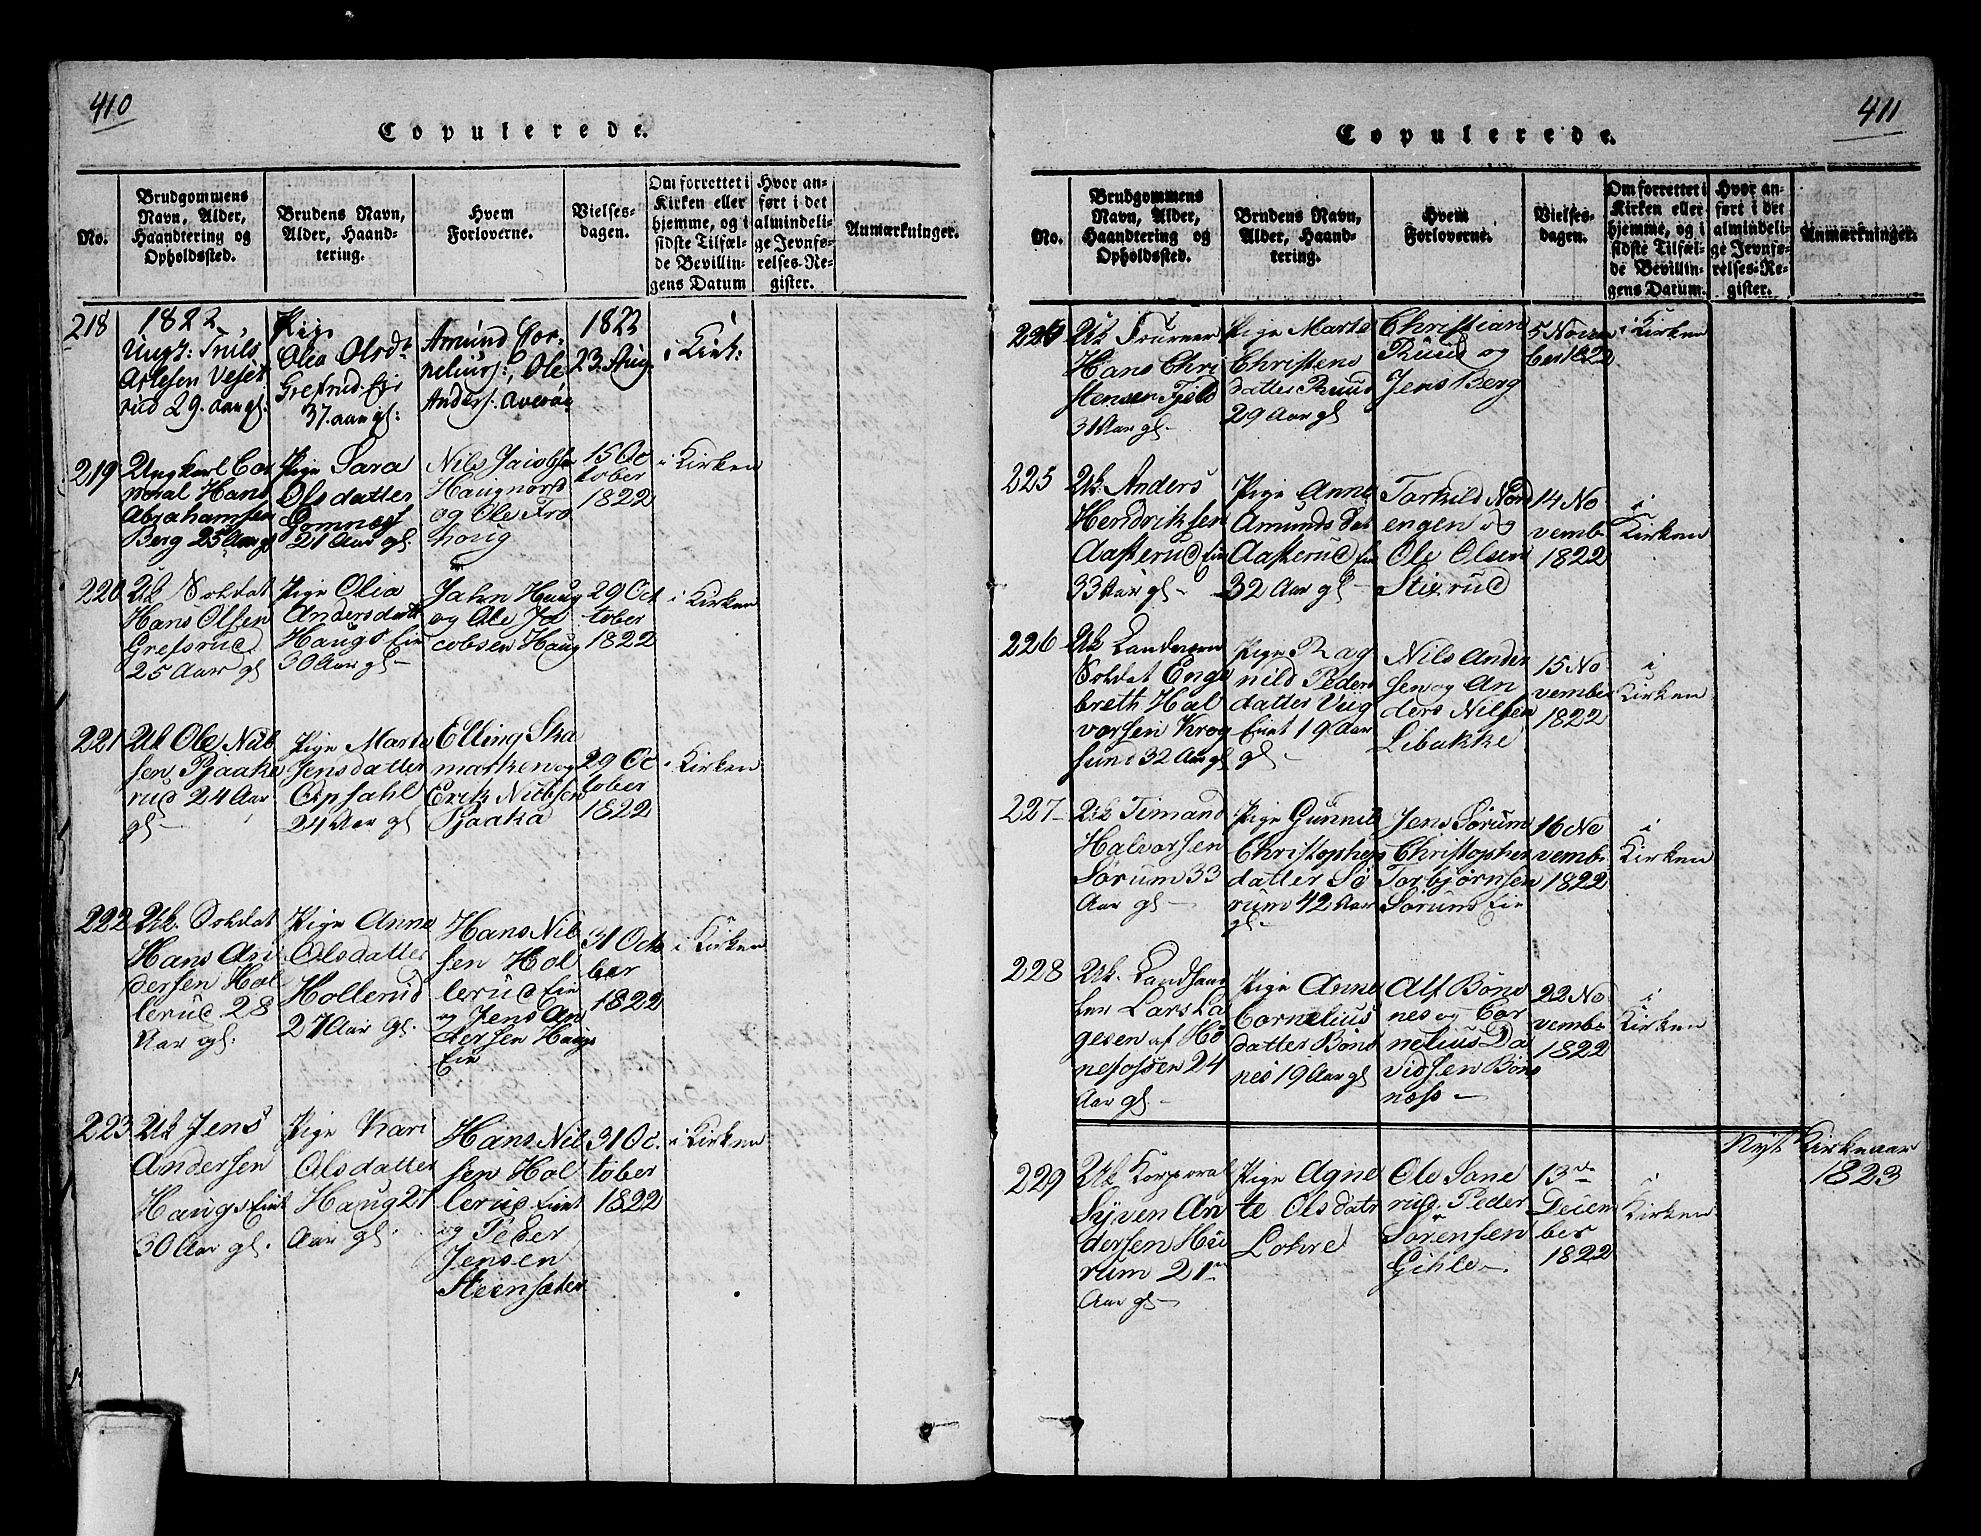 410
Copulerede.
No.
Brudgommens
Navn, Alder,
Haandtering og
Opholdssted.
Brudens Navn,
Alder, Haand-
tering.
Hvem
Forloverne.
Vielses-
dagen.
Om forrettet i
Kirken eller
hjemme, og i
sidste Tilfæl-
de Bevillin-
gens Datum
Hvor an-
ført i det
almindeli-
ge Jevnfø-
relses-Re-
gister.
Anmærkninger.
218
1822.
Ungk: Truls
Asle­sen
rud 29. aar gl.
Pige
Olea Olsdr
Gresrud. Eie
37. aar gl:
Amund Cor-
neliusj:, Ole
Andersj.
1822
23. Aug.
i Kirk:
219
Ungkarl Cor
poral Hans
Abrahamsen
Berg 25 Aar gl
Pige Sara
Olsdatter
Gomnæs
21 Aar gl.
Nils Jacobse
Haugnord
og Ole Fro
houg
15 Oc
tober
1822
i Kirken
220
Uk Soldat
Hans Olsen
Gresrud
25 Aar gl
Pige Olia
Andersdatt
Haugs Eie
30 Aar gl-
John Haug
og Ole Ja
cobsen Haug
29 Oct
tober
1822
i Kirken
221
Uk Ole Nub
sen Pjaake
rud 24 Aar
gl-
Pige Marte
Jensdatter
Opsahl
24 Aar gl
Elling Ska
marken og
Erik Nubsen
Pjaaka
29 Oc
tober
1822
i Kirken
222
Uk. Soldat
Hans An
dersen Hol
lerud 28
Aar gl.
Pige Anne
Olsdatter
Hollerud
27 Aar gl.
Hans Nil
sen Hol
lerud Eie
og Jens An
dersen Haugs
Eie
31 Octo
ber
1822
i Kirken
223
Uk Jens
Andersen
Haugs Eiet
30 Aar gl.
Pige Kari
Olsdatter
Haug 27
Aar gl.
Hans Nil
sen Hol
lerud Eiet
og Peder
Jensen
Steensæter
31 Oc.
tober
1822
i Kirken
411
Copulerede.
No.
Brudgommens
Navn, Alder,
Haandtering og
Opholdssted.
Brudens Navn,
Alder, Haand-
tering.
Hvem
Forloverne.
Vielses-
dagen.
Om forrettet i
Kirken eller
hjemme, og i
sidste Tilfæl-
de Bevillin-
gens Datum.
Hvor an-
ført i det
almindeli-
ge Jevnfø-
relses-Re-
gister.
Anmærkninger.
Uk
Hans Chri
stensen Fjeld
31 Aar gl-
Pige Marte
Christens
datter Ruud
29 Aar gl
Christian
Ruud og
Jens Berg
5 Novem
ber 1822
i Kirken
225
Uk. Anders
Hendriksen
Aasterud Eie
33 Aar gl-
Pige Anne
Amunds Dat
Aasterud Eie
32 Aar gl-
Torkild Nord
engen og
Ole Olsen
Stixrud
14 No
vembr
1822
i
Kirken
226
Uk Landværn
Soldat Enge
breth Hal
vorsen Krog
sund 32 Aar gl
Pige Rag
nild Peders
datter Viig
Eiet 19 Aar
gl-
Nils Ander
sen og An
ders Nilsen
Libakke
15 No
vembe
1822
i
Kirken
227
Uk Timand
Halvorsen
Sørum 33
Aar gl-
Pige Gunnil
Christophers
datter Sø
rum 42 Aar
gl-
Jens Sørum
Christopher
Torbjørnsen
Sørums Eie
16 No
vembr
1822
i
Kirken
228
Uk. Landhand
ler Lars La
gesen af Hø
nefossen 24
Aar gl-
Pige Anne
Cornelius
datter Bøns
nes 19 Aar gl
Alf Bøns
nes og Cor
nelius Da
vidsen Bøns
næss-
22 No
vembr
1822
i
Kirken
Nyt Kirkeaar
1823
229
Uk Korporal
Syven An
dersen Hu
rum 21
Aar gl-
Pige Agne
te Olsdatr
Lohre
Ole Sone
rud. Peder
Sørensen
Gihle-
13de
Decem
ber
1822
i
Kirken